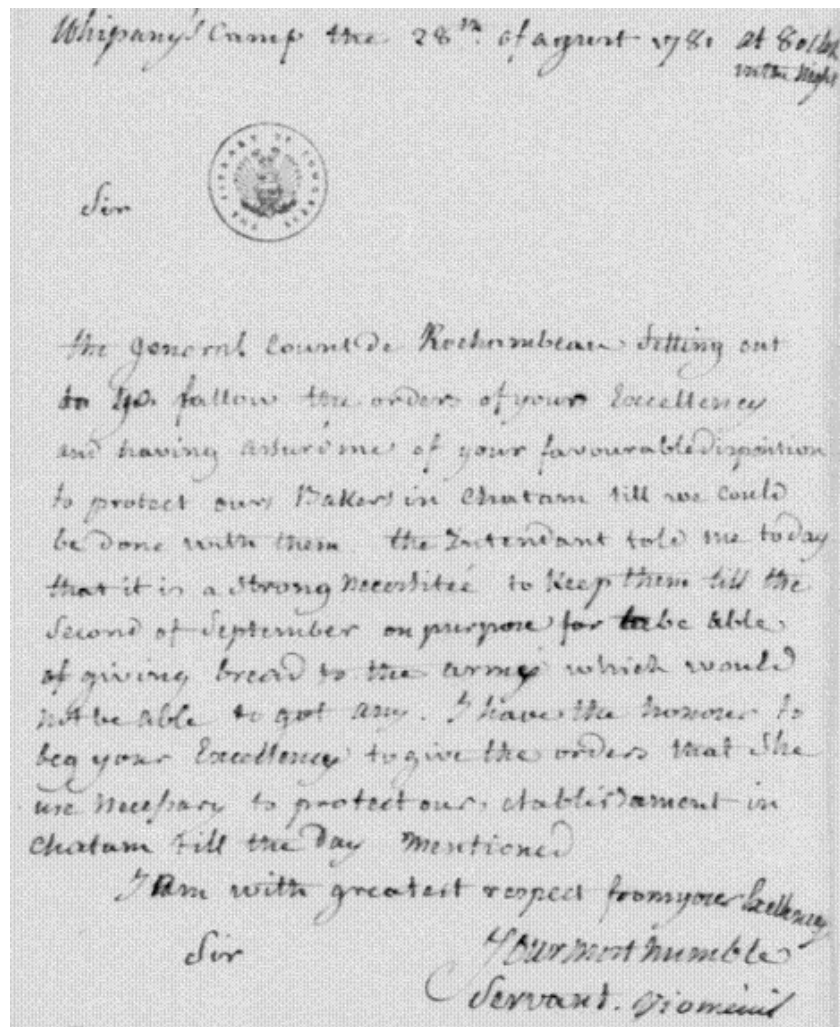 Whipany's Camp the 28th of agust 1781 at 8 o'clok
in the Night
THE LIBRARY OF CONGRESS
Sir
the general Count de Rochambeau Setting out
to go fallow the orders of yours Excellency
and having assur'd me of your favourable disposition
to protect ours Bakers in Chatam till we could
be done with them. the Intendant told me today
that it is a strong necessiteé to Keep them till the
Second of September on purpose for to be able
of giving bread to the army which would
not be able to got any. I have the honour to
beg your Excellency to give the orders that She
use necessary to protect our etablissament in
Chatam till the Day mentioned
I am with greatest respect from your Exellency
Sir Your most humble
Servant. Viomenil